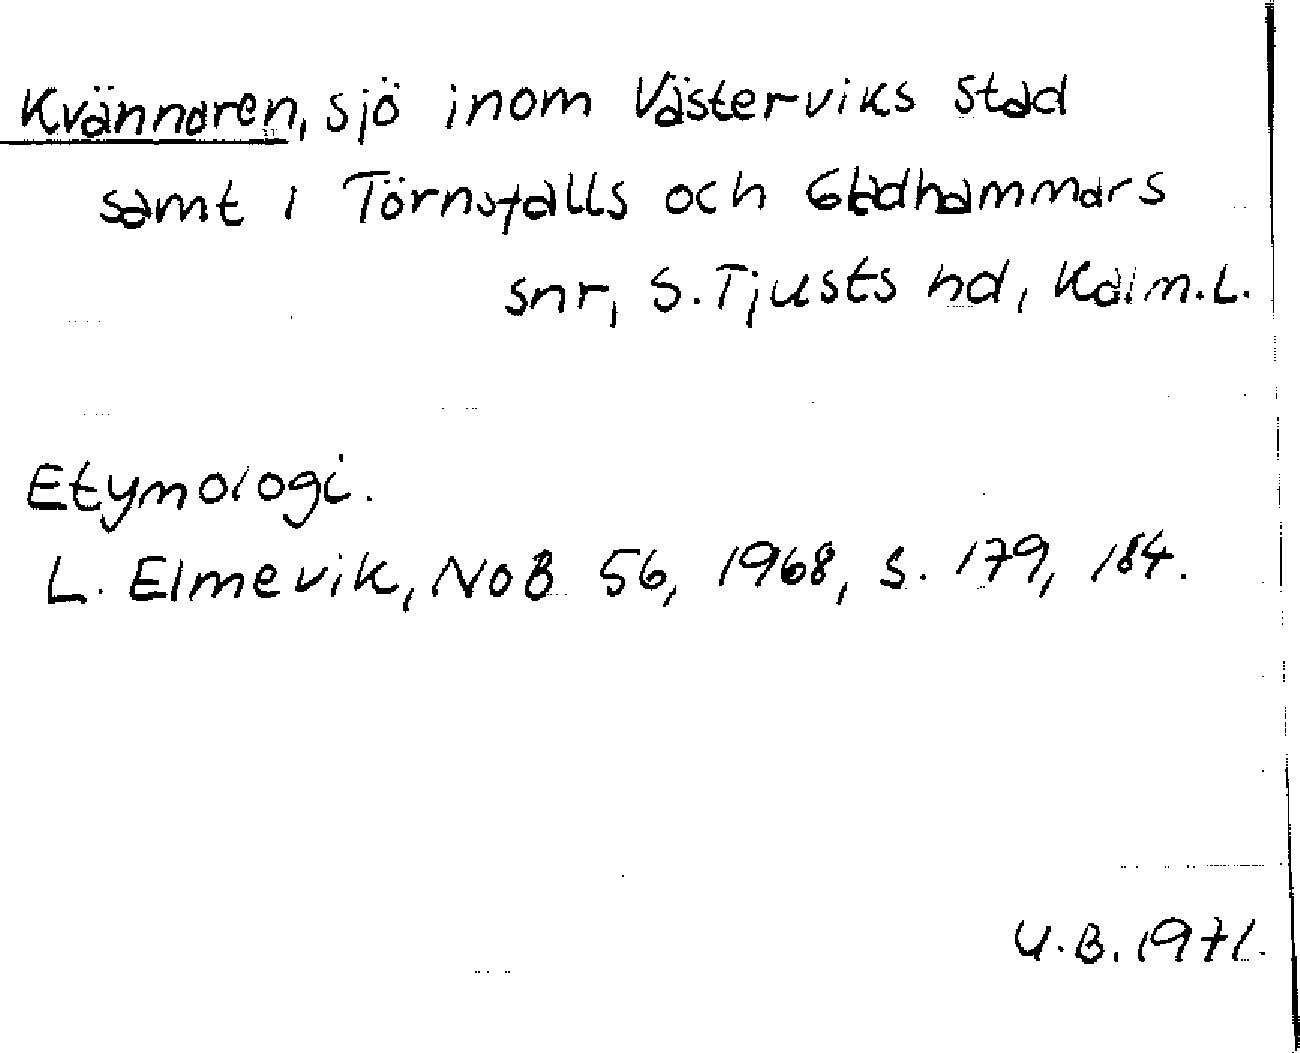 Kvännaren, sjö inom Västerviks stad
samt i Törnsfalls och Gladhammars
snr, S. Tjusts hd, Kalm.L.
Etymologi.
L. Elmevik, NoB 56, 1968, s. 179, 184.
U.B. 1971.